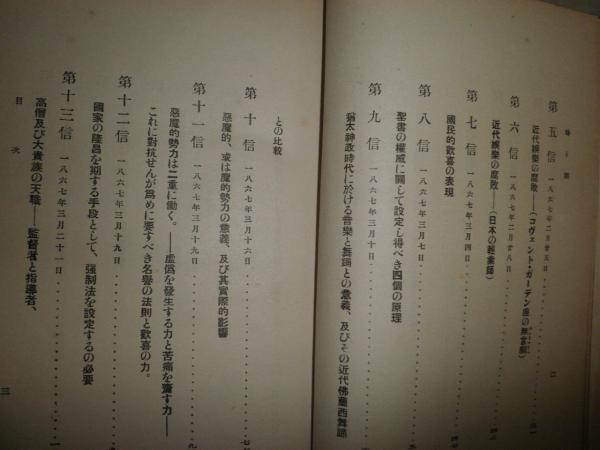 第五信 一八六七年二月二十五日
近代娯樂の腐敗——(コヴェント・ガーデン座の無言劇)
第六信 一八六七年二月廿八日
近代娯樂の腐敗——(日本の輕業師)
第七信 一八六七年三月四日
國民的歡喜の表現
第八信 一八六七年三月七日
聖書の權威に關して設定し得べき四個の原理
第九信 一八六七年三月十日
猶太神政時代に於ける音樂と舞踊との意義、及びその近代佛蘭西舞踊
二
との比較
第十信 一八六七年三月十六日
惡魔的、或は魔的勢力の意義、及び其實際的影響
第十一信 一八六七年三月十九日
惡魔的勢力は二重に働く。——虛僞を發生する力と苦痛を齎す力——
これに對抗せんが爲めに要すべき名譽の法則と歡喜の力。
第十二信 一八六七年三月十九日
國家の隆昌を期する手段として、强制法を設定するの必要
第十三信 一八六七年三月二十一日
高僧及び大貴族の天職——監督者と指導者、
目次
三